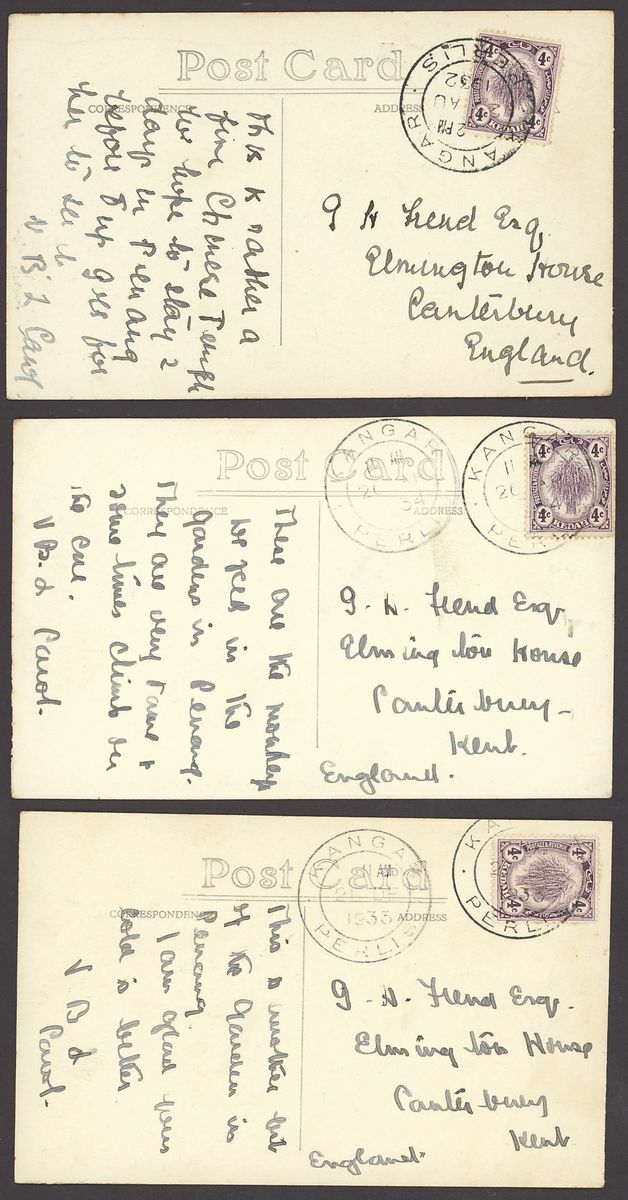 Post Card
CORRESPONDENCE
ADDRESS
KANGAR
PERLIS
2 PM
AU
1932
4c 4c
4c
KEDAH
This is rather a
fine Chinese Temple
We hope to stay 2
days in Penang
before Daddy
her to
V B L Carol
G H Frend Esq.
Elmington House
Canterbury
England.
Post Card
CORRESPONDENCE
ADDRESS
KANGAR
PERLIS
KANGAR
11
PERLIS
4c 4c
4c 4c
KEDAH
These are the monkeys
we fed in the
gardens in Penang.
They are very tame &
some times climb on
the car.
V B. L Carol.
G. H. Frend Esq.
Elmington House
Canterbury
Kent.
England.
Post Card
CORRESPONDENCE
ADDRESS
KANGAR
11 AM
1933
PERLIS
PERLIS
POSTAGE & REVENUE
4c 4c
4c 4c
KEDAH
This is another bit
of the Garden in
Penang.
I am glad your
cold is better
V B L
Carol.
G. H. Frend Esq.
Elmington House
Canterbury
Kent
England